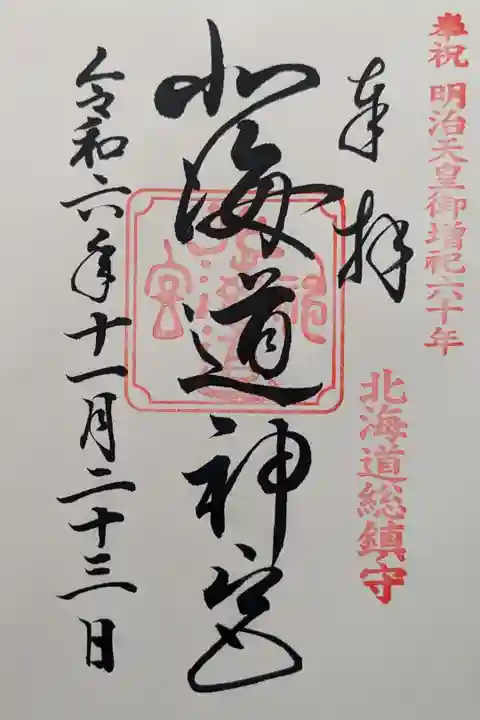 奉祝 明治天皇御増祀六十年
北海道総鎮守
奉拝
北海道神宮
令和六年十一月二十三日